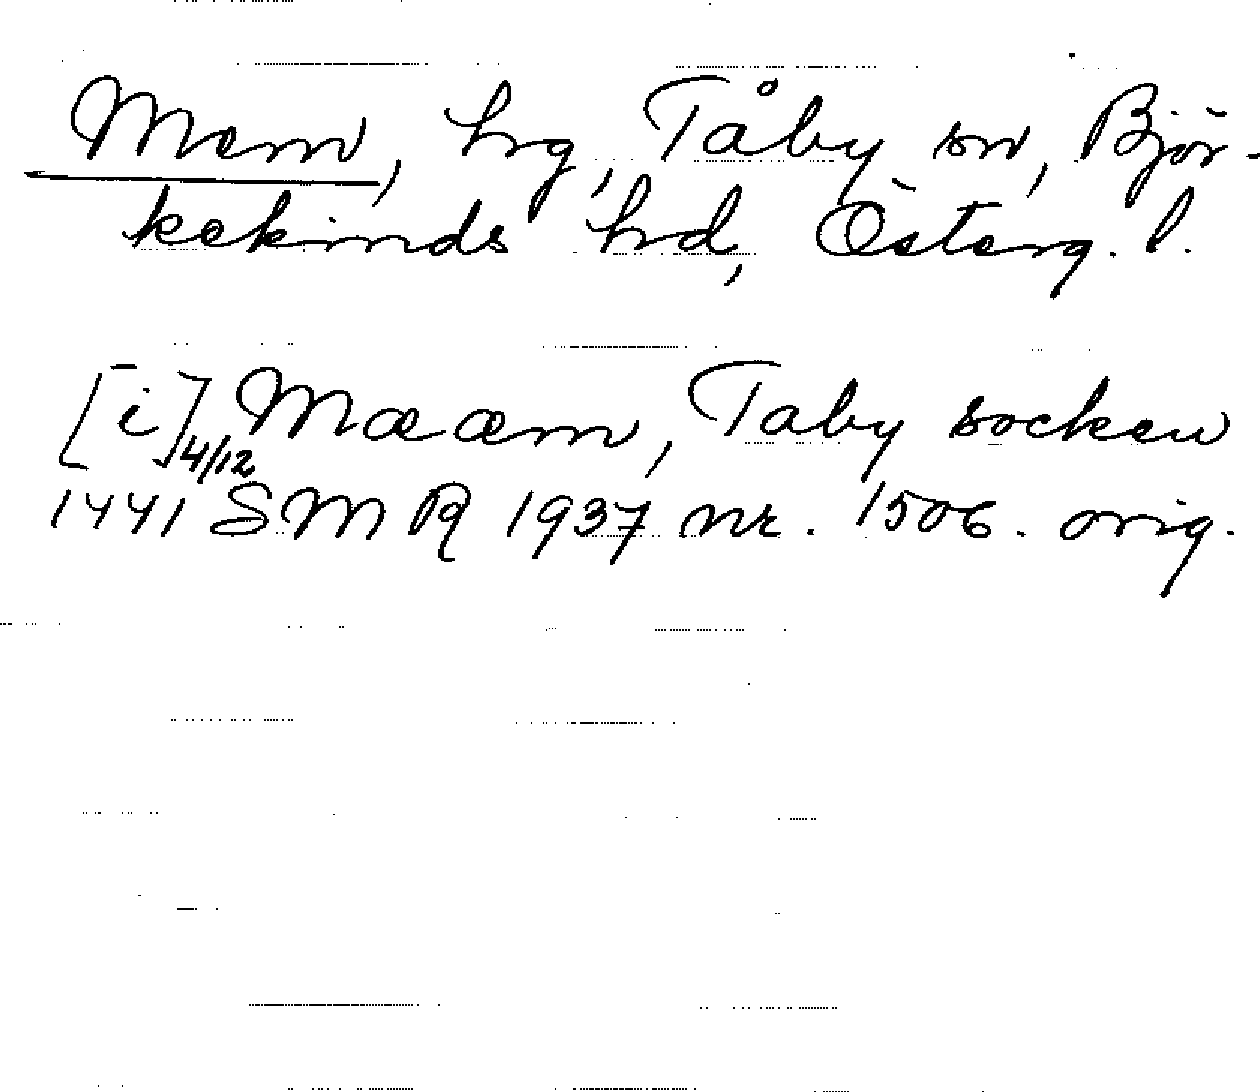 Mem, hg, Tåby sn, Björ-
kekinds hd, Österg. l.
[i] Mææm, Taby socken
4/12
1441 SMR 1937 nr. 1506. orig.